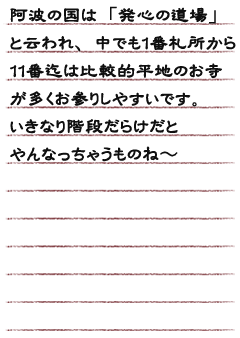 阿波の国は「発心の道場」
と云われ、中でも1番札所から
11番迄は比較的平地のお寺
が多くお参りしやすいです。
いきなり階段だらけだと
やんなっちゃうものね～